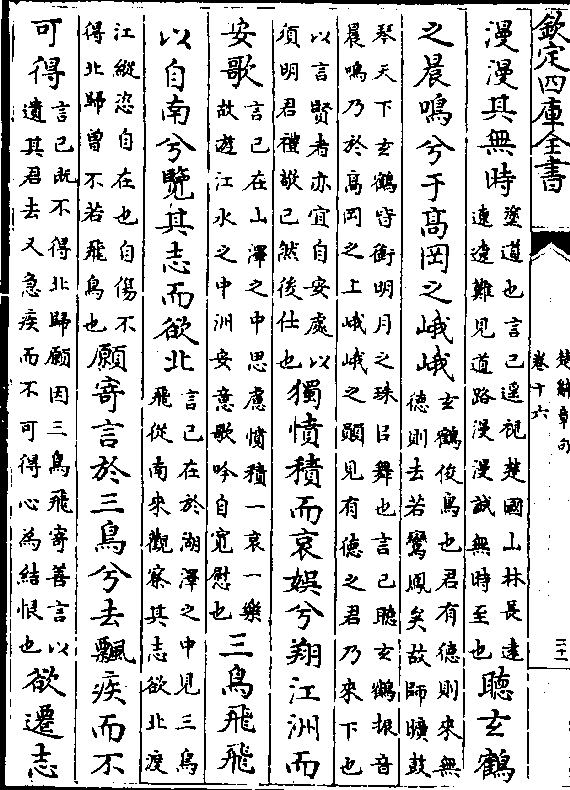 欽定四庫全書
楚辭章句
卷十六
漫漫其無時
塗道也言已遥視楚國山林長遠
遠遼難見道路漫漫誠無時至也
聽玄鶴
之晨鳴兮于高岡之峨峨
玄鶴俊鳥也君有德則來無
德則去若鸞鳳矣故師曠鼓
琴天下玄鶴皆銜明月之珠㠯舞也言已聽玄鶴振音
晨鳴乃於高岡之上峨峨之顛見有德之君乃來下也
以言賢者亦宜自安處以
須明君禮敬已然後仕也
獨憤積而哀娛兮翔江洲而
安歌
言已在山澤之中思慮憤積一哀一樂
故遊江水之中洲安意歌吟自寬慰也
三鳥飛飛
以自南兮覽其志而欲北
言已在於湖澤之中見三鳥
飛從南來觀察其志欲北渡
江縱恣自在也自傷不
得北歸曾不若飛鳥也
願寄言於三鳥兮去飄疾而不
可得
言已既不得北歸願因三鳥飛寄善言以
遺其君去又急疾而不可得心為結恨也
欲遷志